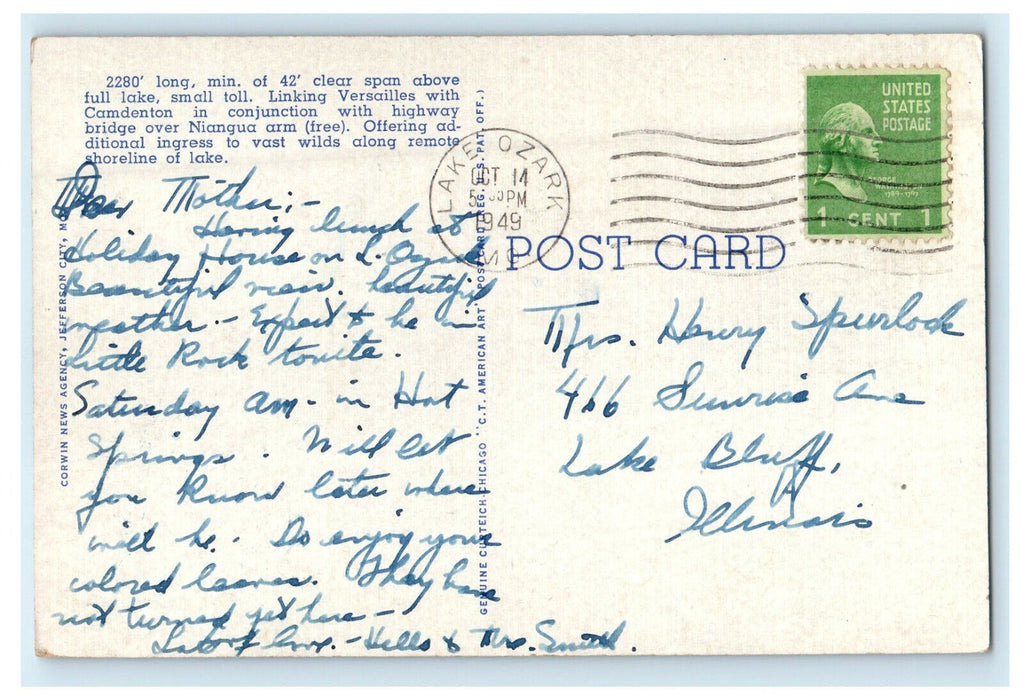 2280' long, min. of 42' clear span above
full lake, small toll. Linking Versailles with
Camdenton in conjunction with highway
bridge over Niangua arm (free). Offering ad-
ditional ingress to vast wilds along remote
shoreline of lake.
Dear Mother;-
Having lunch at
Holiday House on L. Ozark
Beautiful view. beautiful
weather - Expect to be in
Little Rock tonite.
Saturday am - in Hot
Springs. Will let
you know later where
will be. Do enjoy your
colored leaves. They have
not turned yet here -
Lots of love - & Mrs. Smith.
CORWIN NEWS AGENCY, JEFFERSON CITY, MO.
GENUINE CURTEICH-CHICAGO "C.T. AMERICAN ART" POST CARD (REG. U.S. PAT. OFF.)
LAKE OZARK
OCT 14
5 PM
1949
MO
UNITED
STATES
POSTAGE
GEORGE
WASHINGTON
1789-1797
1 CENT 1
POST CARD
Mrs. Henry Spurlock
466 Sunrise Ave
Lake Bluff,
Illinois